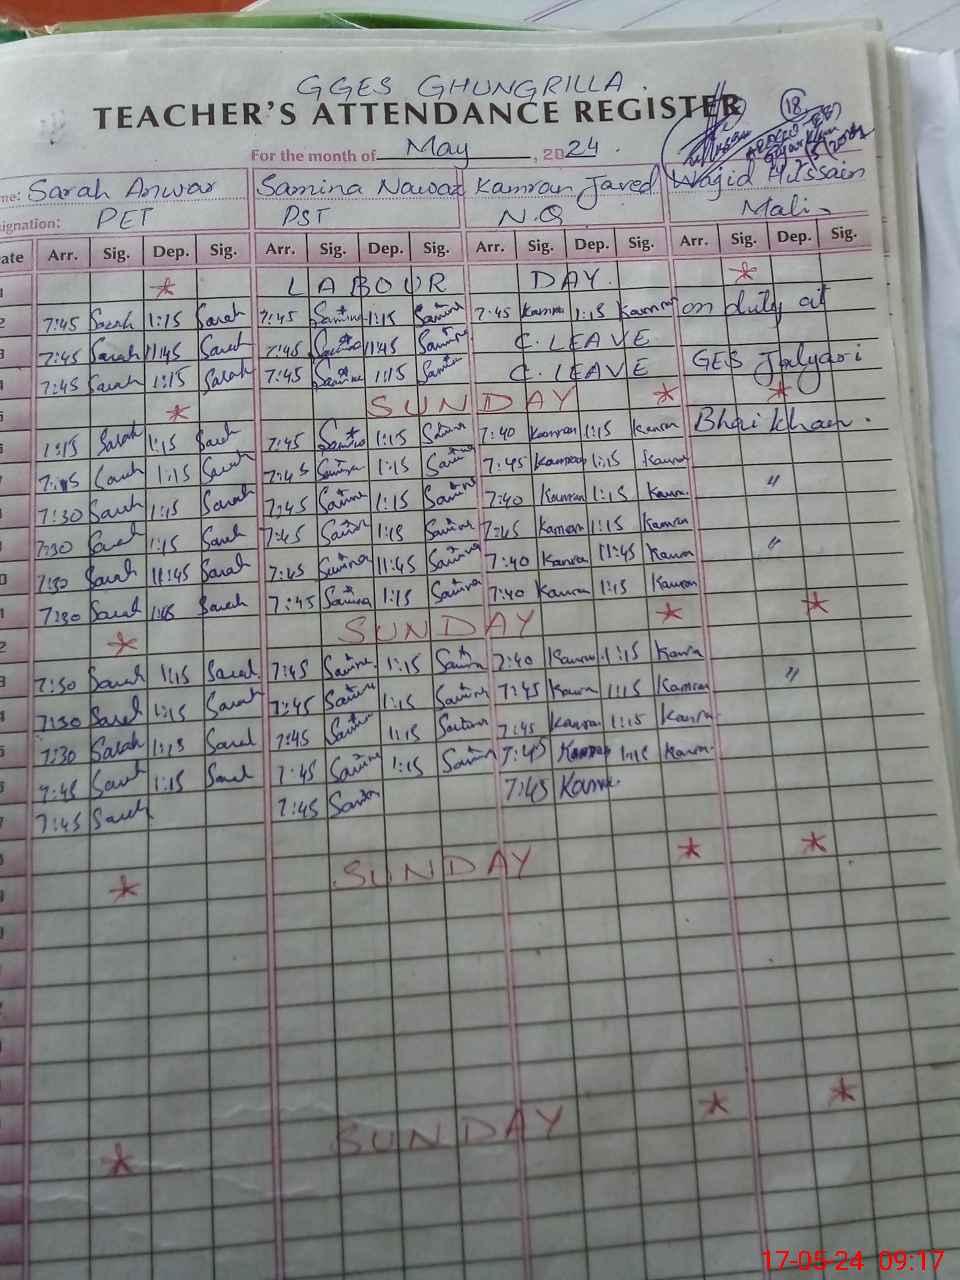 GGES GHUNGRILLA.
TEACHER'S ATTENDANCE REGISTER
18
For the month of May, 2024.
me: Sarah Anwar Samina Nawaz Kamran Javed Wajid Hussain
signation: PET PST N.Q Mali
ate Arr. Sig. Dep. Sig. Arr. Sig. Dep. Sig. Arr. Sig. Dep. Sig. Arr. Sig. Dep. Sig.
1 * LABOUR DAY. *
2 7:45 Sarah 1:15 Sarah 7:45 Samina 1:15 Samina 7:45 Kamran 1:15 Kamran on duty at
3 7:45 Sarah 11:45 Sarah 7:45 Samina 11:45 Samina C. LEAVE
4 7:45 Sarah 1:15 Sarah 7:45 Samina 1:15 Samina C. LEAVE GES Jalyari
5 * SUNDAY * *
6 1:15 Sarah 1:15 Sarah 7:45 Samina 1:15 Samina 7:40 Kamran 1:15 Kamran Bhai Khan.
Sarah 1:15 Sarah 7:45 Samina 1:15 Samina 7:45 Kamran 1:15 Kamran
7:30 Sarah 1:15 Sarah 7:45 Samina 1:15 Samina 7:40 Kamran 1:15 Kamran "
7:30 Sarah 1:15 Sarah 7:45 Samina 1:15 Samina 7:45 Kamran 1:15 Kamran
0 7:30 Sarah 11:45 Sarah 7:45 Samina 11:45 Samina 7:40 Kamran 11:45 Kamran "
1 7:30 Sarah Sarah 7:45 Samina 1:15 Samina 7:40 Kamran 1:15 Kamran
2 * SUNDAY * *
3 7:30 Sarah 1:15 Sarah 7:45 Samina 1:15 Samina 7:40 Kamran 1:15 Kamran
4 7:30 Sarah 1:15 Sarah 7:45 Samina 1:15 Samina 7:45 Kamran 1:15 Kamran "
5 7:30 Sarah 1:15 Sarah 7:45 Samina 1:15 Samina 7:45 Kamran 1:15 Kamran
6 7:45 Sarah 1:15 Sarah 7:45 Samina 1:15 Samina 7:45 Kamran 1:15 Kamran
7 7:45 Sarah 7:45 Samina 7:45 Kamran
8
9 * SUNDAY * *
* SUNDAY * *
17-05-24 09:17